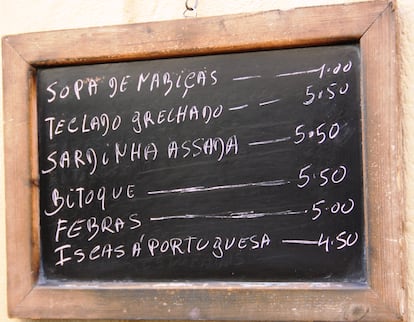 SOPA DE NABIÇAS — 1.00
TECLADO GRELHADO — 5.50
SARDINHA ASSADA — 5.50
BITOQUE — 5.50
FEBRAS — 5.00
ISCAS Á PORTUGUESA — 4.50